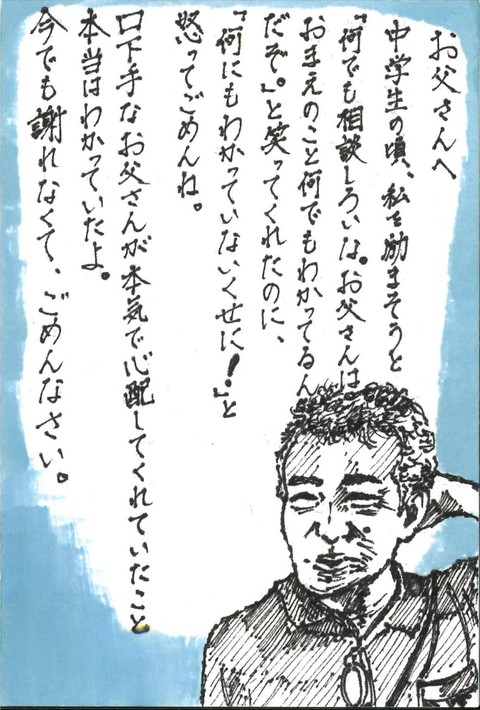 お父さんへ
中学生の頃、私を励まそうと
『何でも相談しろいな。お父さんは
おまえのこと何でもわかってるん
だぞ。』と笑ってくれたのに、
『何にもわかっていないくせに!』と
怒ってごめんね。
口下手なお父さんが本気で心配してくれていたこと
本当はわかっていたよ。
今でも謝れなくて、ごめんなさい。